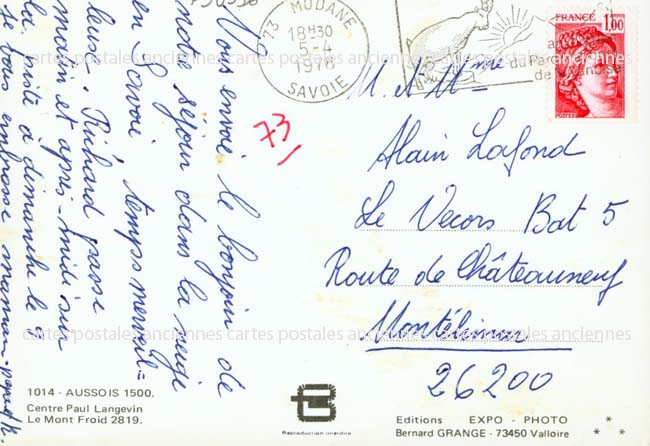 73 MODANE
18H30
5-4
1978
SAVOIE
du Parc
de la Vanoise
FRANCE
1,00
POSTES
73
Vous envoi le bonjour de
notre séjour dans la neige
en Savoi temps merveil=
leuse. Richard passe
matin et après-midi sur
la piste à dimanche le 9
je vous embrasse maman-
M. et Mme
Alain Lafond
Le Vecors Bat 5
Route de Châteauneuf
Montélimar
26200
cartes postales anciennes cartes postales anciennes cartes postales anciennes
cartes postales anciennes cartes postales anciennes cartes postales anciennes
1014 - AUSSOIS 1500.
Centre Paul Langevin
Le Mont Froid 2819.
Reproduction interdite
Editions EXPO - PHOTO
Bernard GRANGE - 73450 Valloire